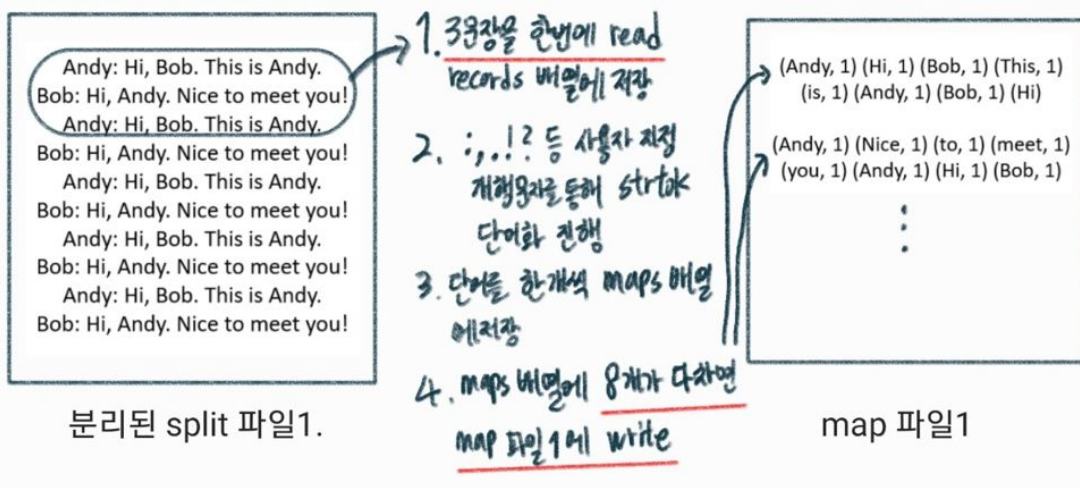 Andy: Hi, Bob. This is Andy.
Bob: Hi, Andy. Nice to meet you!
Andy: Hi, Bob. This is Andy.
Bob: Hi, Andy. Nice to meet you!
Andy: Hi, Bob. This is Andy.
Bob: Hi, Andy. Nice to meet you!
Andy: Hi, Bob. This is Andy.
Bob: Hi, Andy. Nice to meet you!
Andy: Hi, Bob. This is Andy.
Bob: Hi, Andy. Nice to meet you!
분리된 split 파일1.
1. 3문장을 한번에 read
records 배열에 저장
2. :,.!? 등 사용자 지정
개행문자를 통해 strtok
단어화 진행
3. 단어를 한개씩 maps 배열
에저장
4. maps 배열에 8개가 다차면
map 파일1에 write
(Andy, 1) (Hi, 1) (Bob, 1) (This, 1)
(is, 1) (Andy, 1) (Bob, 1) (Hi)
(Andy, 1) (Nice, 1) (to, 1) (meet, 1)
(you, 1) (Andy, 1) (Hi, 1) (Bob, 1)
map 파일1